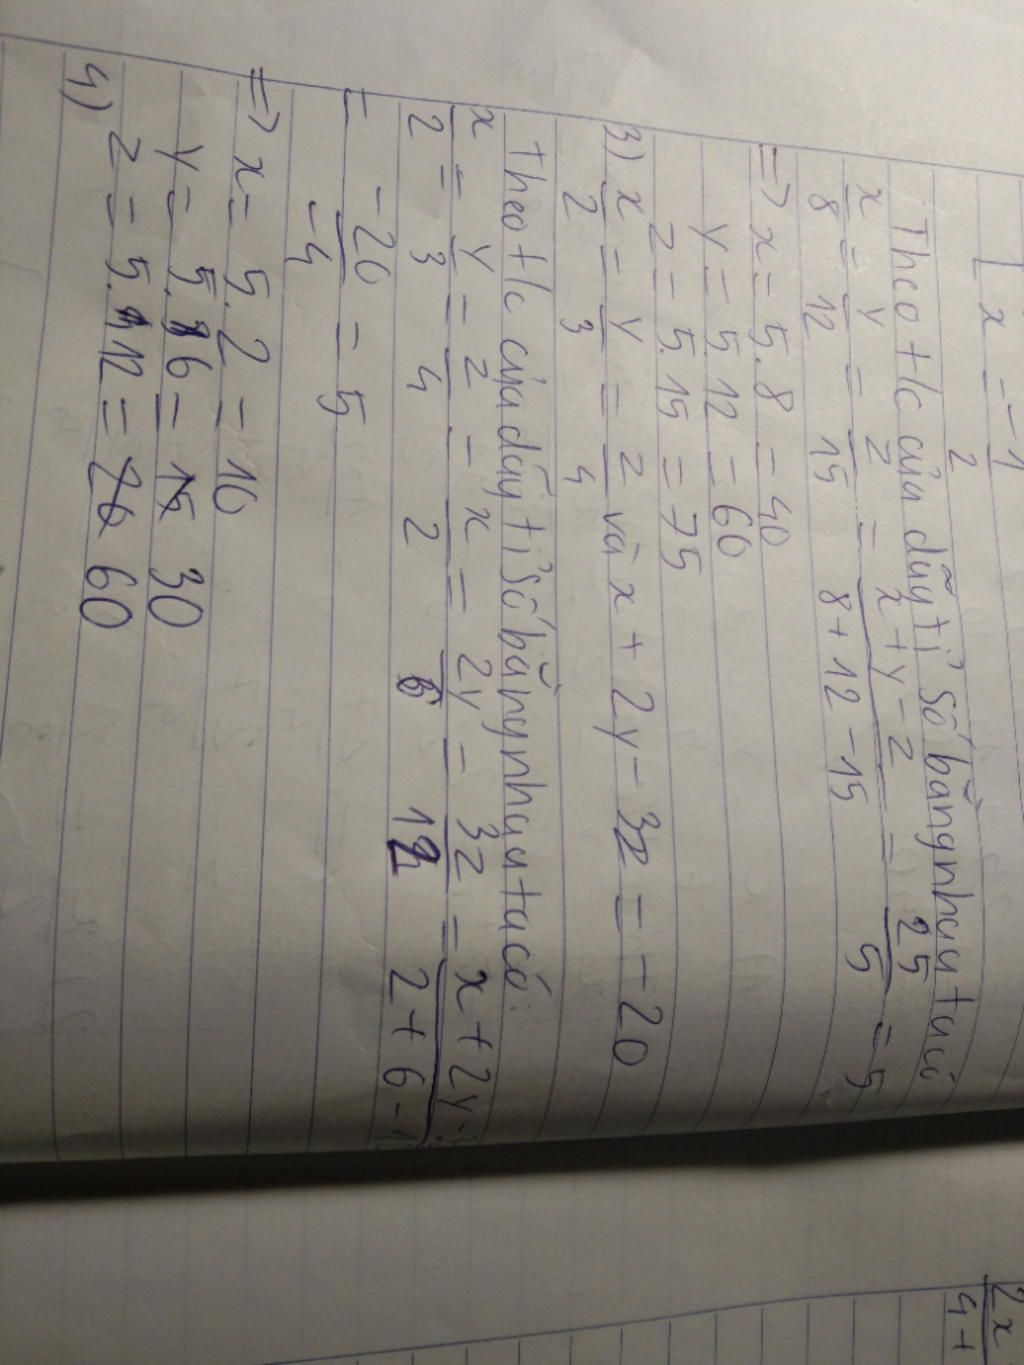 [ x = -1/2
Theo t/c của dãy tỉ số bằng nhau ta có
x/8 = y/12 = z/15 = x+y-z/8+12-15 = 25/5 = 5
=> x = 5.8 = 40
y = 5.12 = 60
z = 5.15 = 75
3) x/2 = y/3 = z/4 và x + 2y - 3z = -20
Theo t/c của dãy tỉ số bằng nhau ta có:
x/2 = y/3 = z/4 = x/2 = 2y/6 = 3z/12 = x+2y-/2+6-1
= -20/-4 = 5
=> x = 5.2 = 10
y = 5.6 = 15 30
z = 5.12 = 20 60
4)
2x
4+